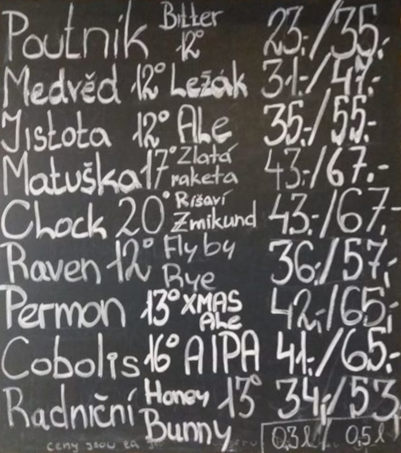 Poutník Bitter 12° 23.-/35.-
Medvěd 12° Ležák 31.-/47.-
Jistota 12° Ale 35.-/55.-
Matuška 17° Zlatá raketa 43.-/67.-
Chock 20° Ríšaví Zmikund 43.-/67.-
Raven 12° Fly by Rye 36.-/57.-
Permon 13° XMAS Ale 42.-/65.-
Cobolis 16° AIPA 41.-/65.-
Radniční Honey Bunny 13° 34.-/53
0,3 l 0,5 l
ceny jsou za